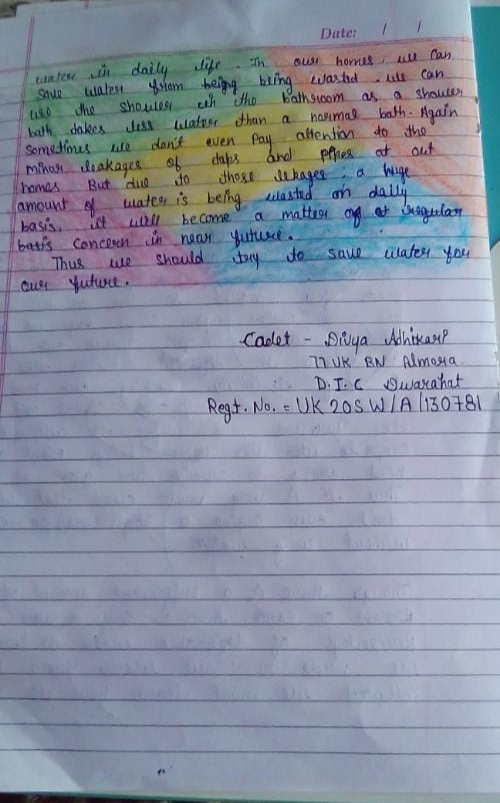 Date: / /
water in daily life. In our homes, we can
save water from being being wasted. we can
use the shower in the bathroom as a shower
bath takes less water than a normal bath. Again
sometimes we don't even pay attention to the
minor leakages of taps and pipes at out
homes But due to these lekages, a huge
amount of water is being wasted on daily
basis. it will become a matter of at regular
basis concern in near future.
Thus we should try to save water for
our future.
Cadet - Divya Adhikari
77 UK BN Almora
D.I.C Dwarahat
Regt. No. = UK 20S W/A/130781